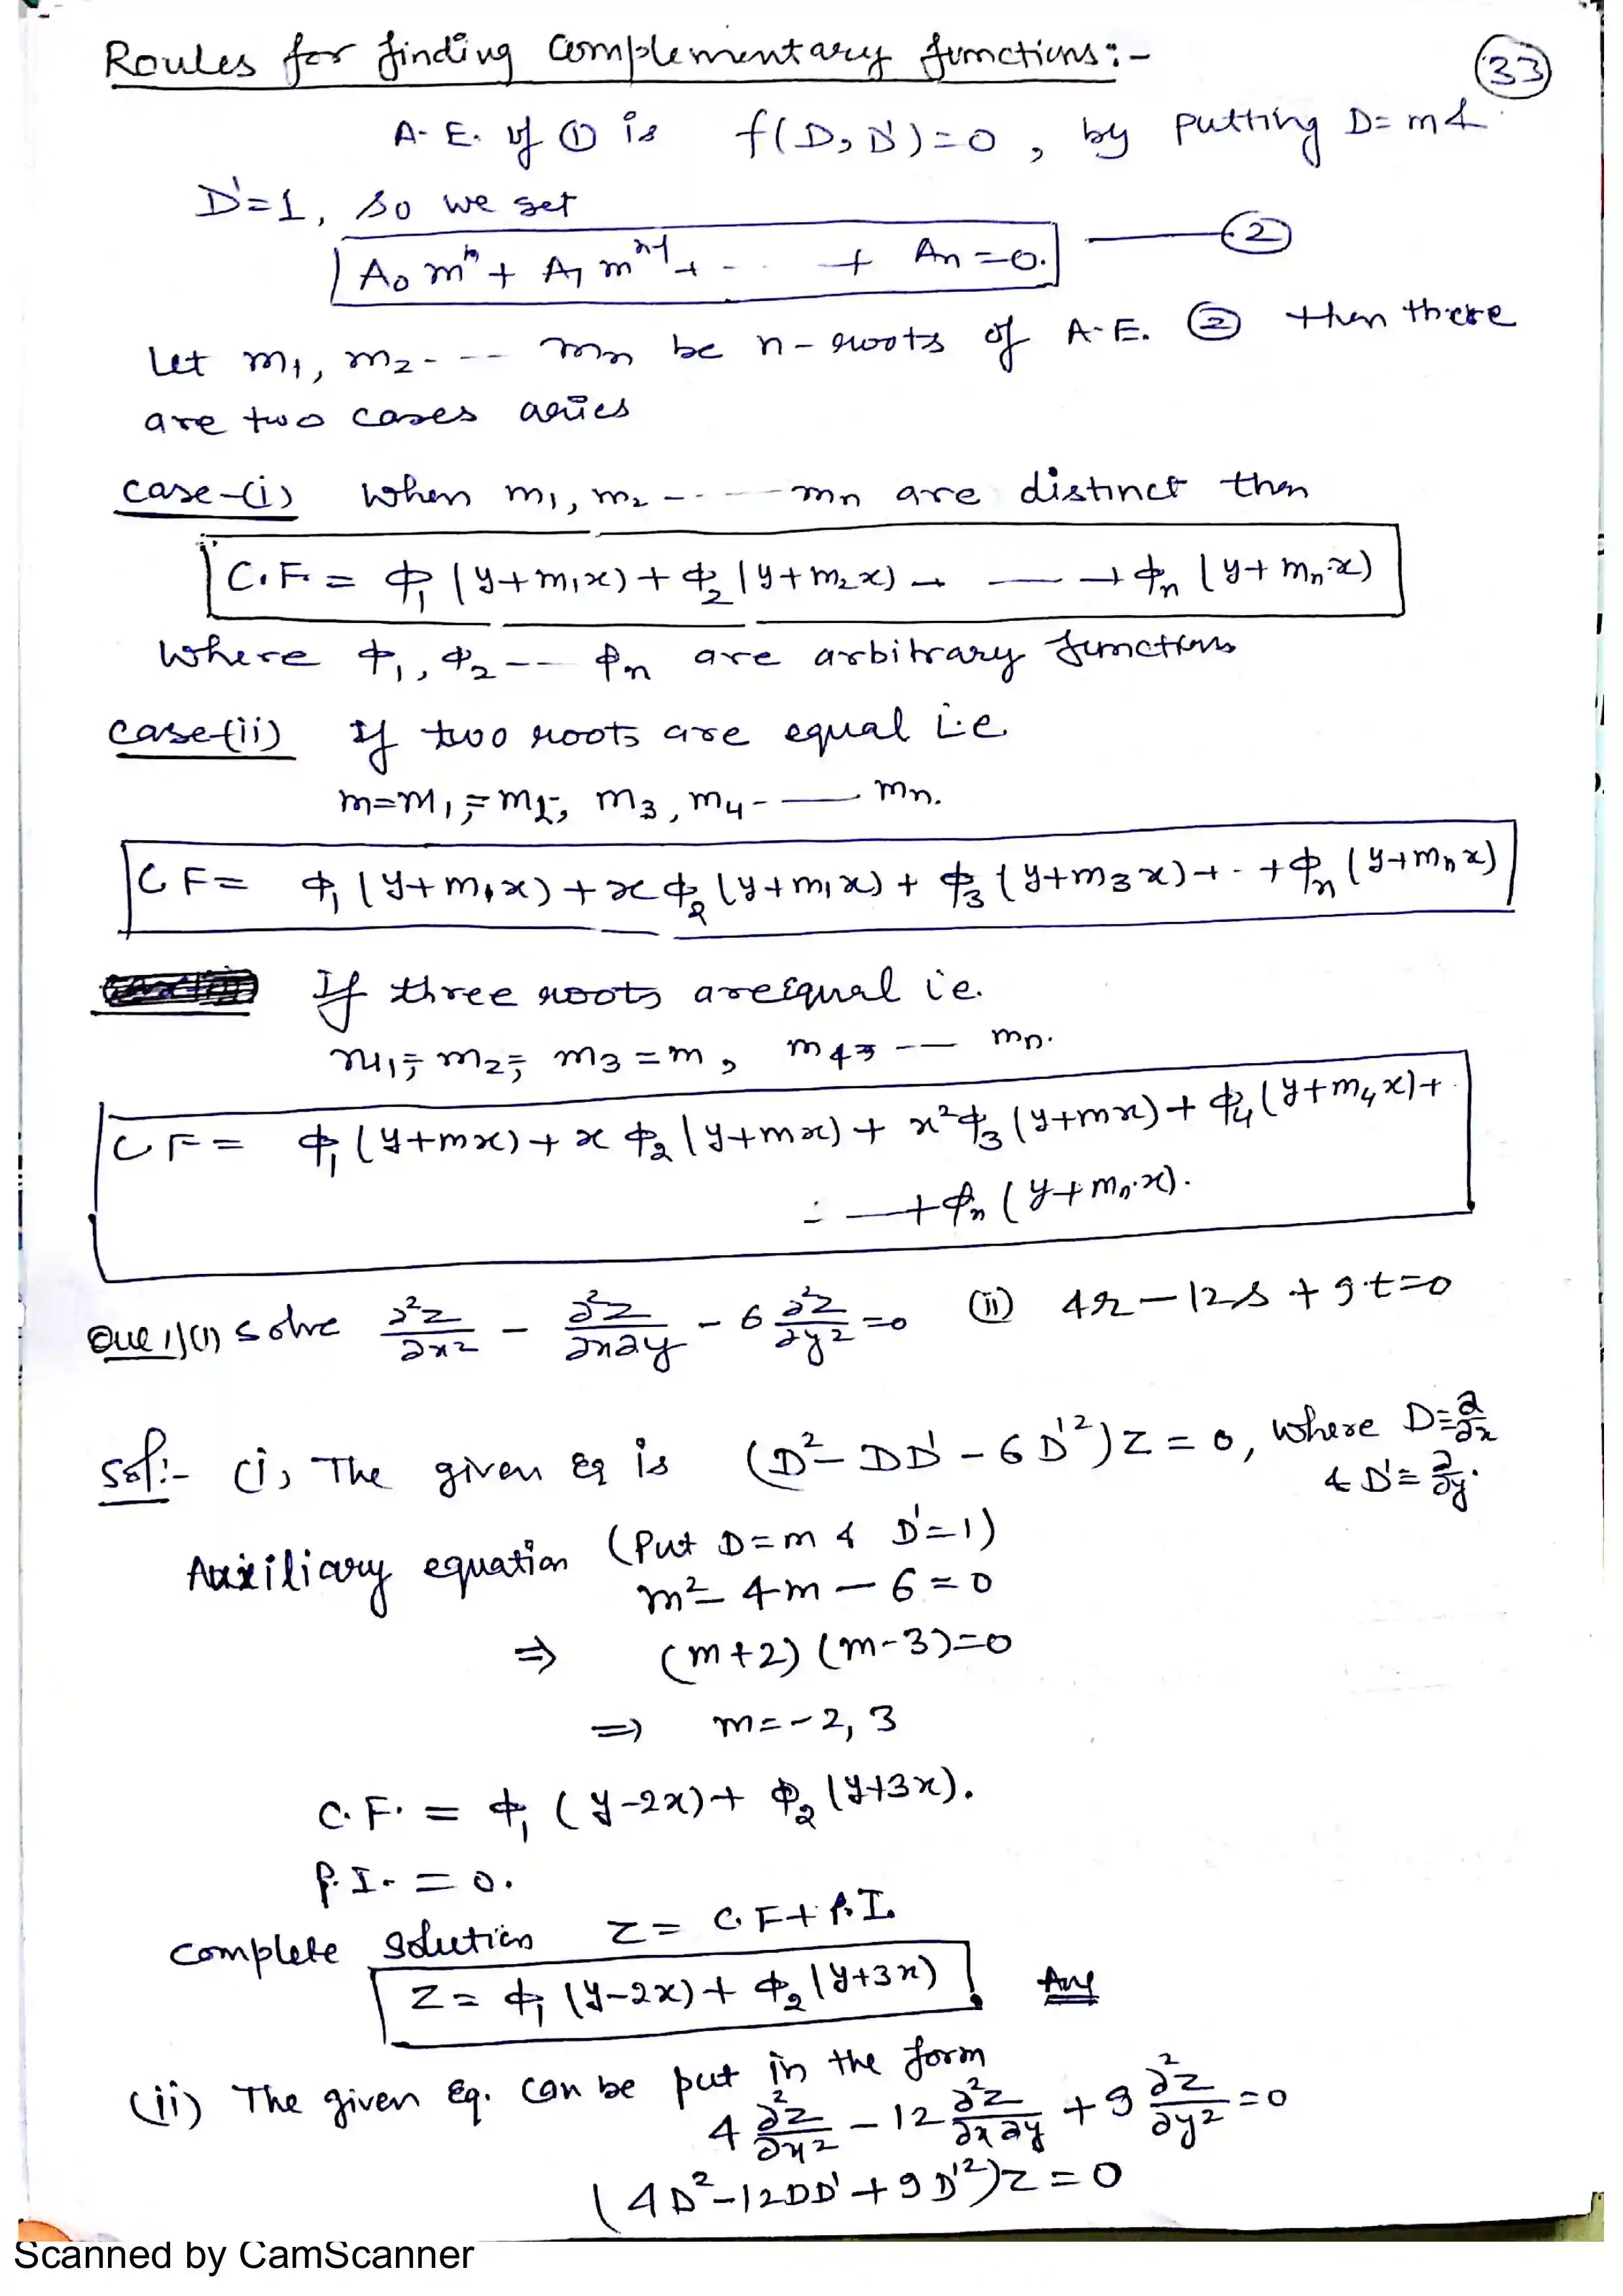 Roules for finding complementary functions:-
33
A.E. of ① is f(D, D')=0, by putting D=m &
D'=1, so we get
A₀mⁿ + A₁mⁿ⁻¹ + - .. + An =0. —— ②
Let m₁, m₂- -- mn be n-roots of A.E. ② then there
are two cases aries
case-(i) when m₁, m₂ -- -- mn are distinct then
C.F. = ϕ₁(y+m₁x)+ϕ₂(y+m₂x) + —— +ϕn(y+mn x)
where ϕ₁, ϕ₂ -- ϕn are arbitrary functions
case-(ii) If two roots are equal i.e.
m=m₁=m₂, m₃, m₄- — mn.
CF= ϕ₁(y+m₁x)+xϕ₂(y+m₁x)+ϕ₃(y+m₃x)+..+ϕn(y+mn x)
If three roots are equal ie.
m₁=m₂=m₃=m, m₄, -- — mn.
CF= ϕ₁(y+mx)+xϕ₂(y+mx)+x²ϕ₃(y+mx)+ϕ₄(y+m₄x)+
- —+ϕn(y+mn x).
Que 1)(i) solve ∂²z/∂x² - ∂²z/∂x∂y - 6 ∂²z/∂y² =0 (ii) 4r-12s+9t=0
Sol:- (i) The given Eq is (D²-DD'-6D'²)z=0, where D=∂/∂x
& D'=∂/∂y.
Auxiliary equation (Put D=m & D'=1)
m²-4m-6=0
⇒ (m+2)(m-3)=0
⇒ m=-2, 3
C.F. = ϕ₁(y-2x)+ϕ₂(y+3x).
P.I. = 0.
complete solution z= C.F+P.I.
z= ϕ₁(y-2x)+ϕ₂(y+3x) Ans
(ii) The given Eq. can be put in the form
4 ∂²z/∂x² - 12 ∂²z/∂x∂y + 9 ∂²z/∂y² =0
(4D²-12DD'+9D'²)z=0
Scanned by CamScanner